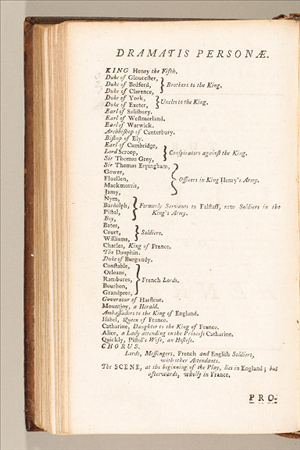 DRAMATIS PERSONÆ.
KING Henry the Fifth.
Duke of Gloucester,
Duke of Bedford, } Brothers to the King.
Duke of Clarence,
Duke of York, } Uncles to the King.
Duke of Exeter,
Earl of Salisbury.
Earl of Westmorland.
Earl of Warwick.
Archbishop of Canterbury.
Bishop of Ely.
Earl of Cambridge,
Lord Scroop, } Conspirators against the King.
Sir Thomas Grey,
Sir Thomas Erpingham,
Gower,
Fluellen, } Officers in King Henry's Army.
Mackmorris,
Jamy,
Nym,
Bardolph, } Formerly Servants to Falstaff, now Soldiers in the
Pistol, King's Army.
Boy,
Bates,
Court, } Soldiers.
Williams,
Charles, King of France.
The Dauphin.
Duke of Burgundy.
Constable,
Orleans,
Rambures, } French Lords.
Bourbon,
Grandpree,
Governour of Harfleur.
Mountjoy, a Herald.
Ambassadors to the King of England.
Isabel, Queen of France.
Catharine, Daughter to the King of France.
Alice, a Lady attending on the Princess Catharine.
Quickly, Pistol's Wife, an Hostess.
CHORUS.
Lords, Messengers, French and English Soldiers,
with other Attendants.
The SCENE, at the beginning of the Play, lies in England; but
afterwards, wholly in France.
PRO-